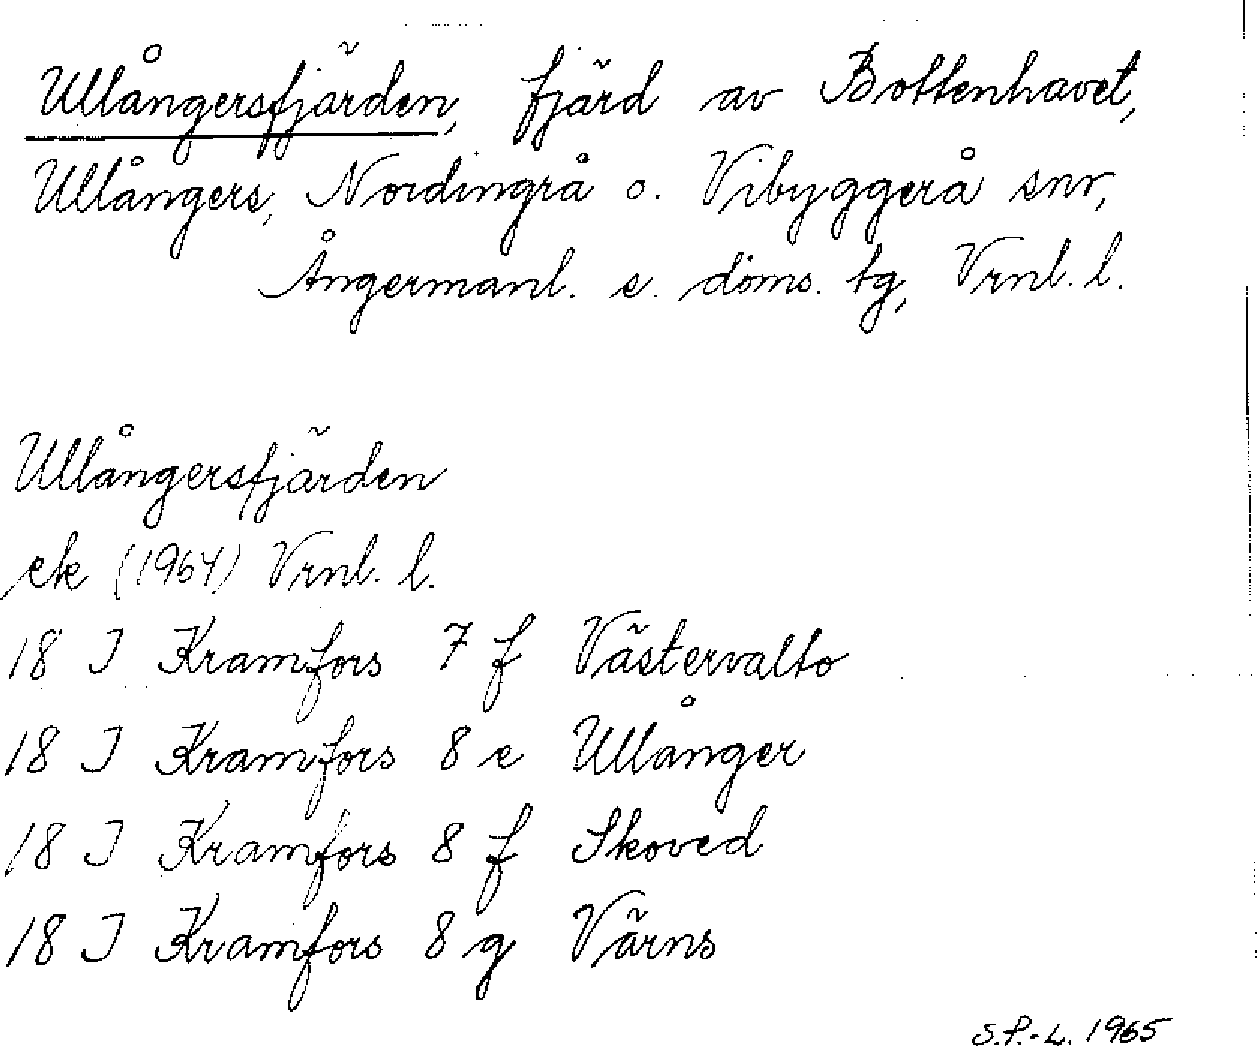 Ullångersfjärden, fjärd av Bottenhavet,
Ullångers, Nordingrå o. Vibyggerå snr,
Ångermanl. s. doms. tg, Vrnl. l.
Ullångersfjärden
ek (1964) Vrnl. l.
18 J Kramfors 7 f Västervalto
18 J Kramfors 8 e Ullånger
18 J Kramfors 8 f Skoved
18 J Kramfors 8 g Värns
S.P.-L. 1965